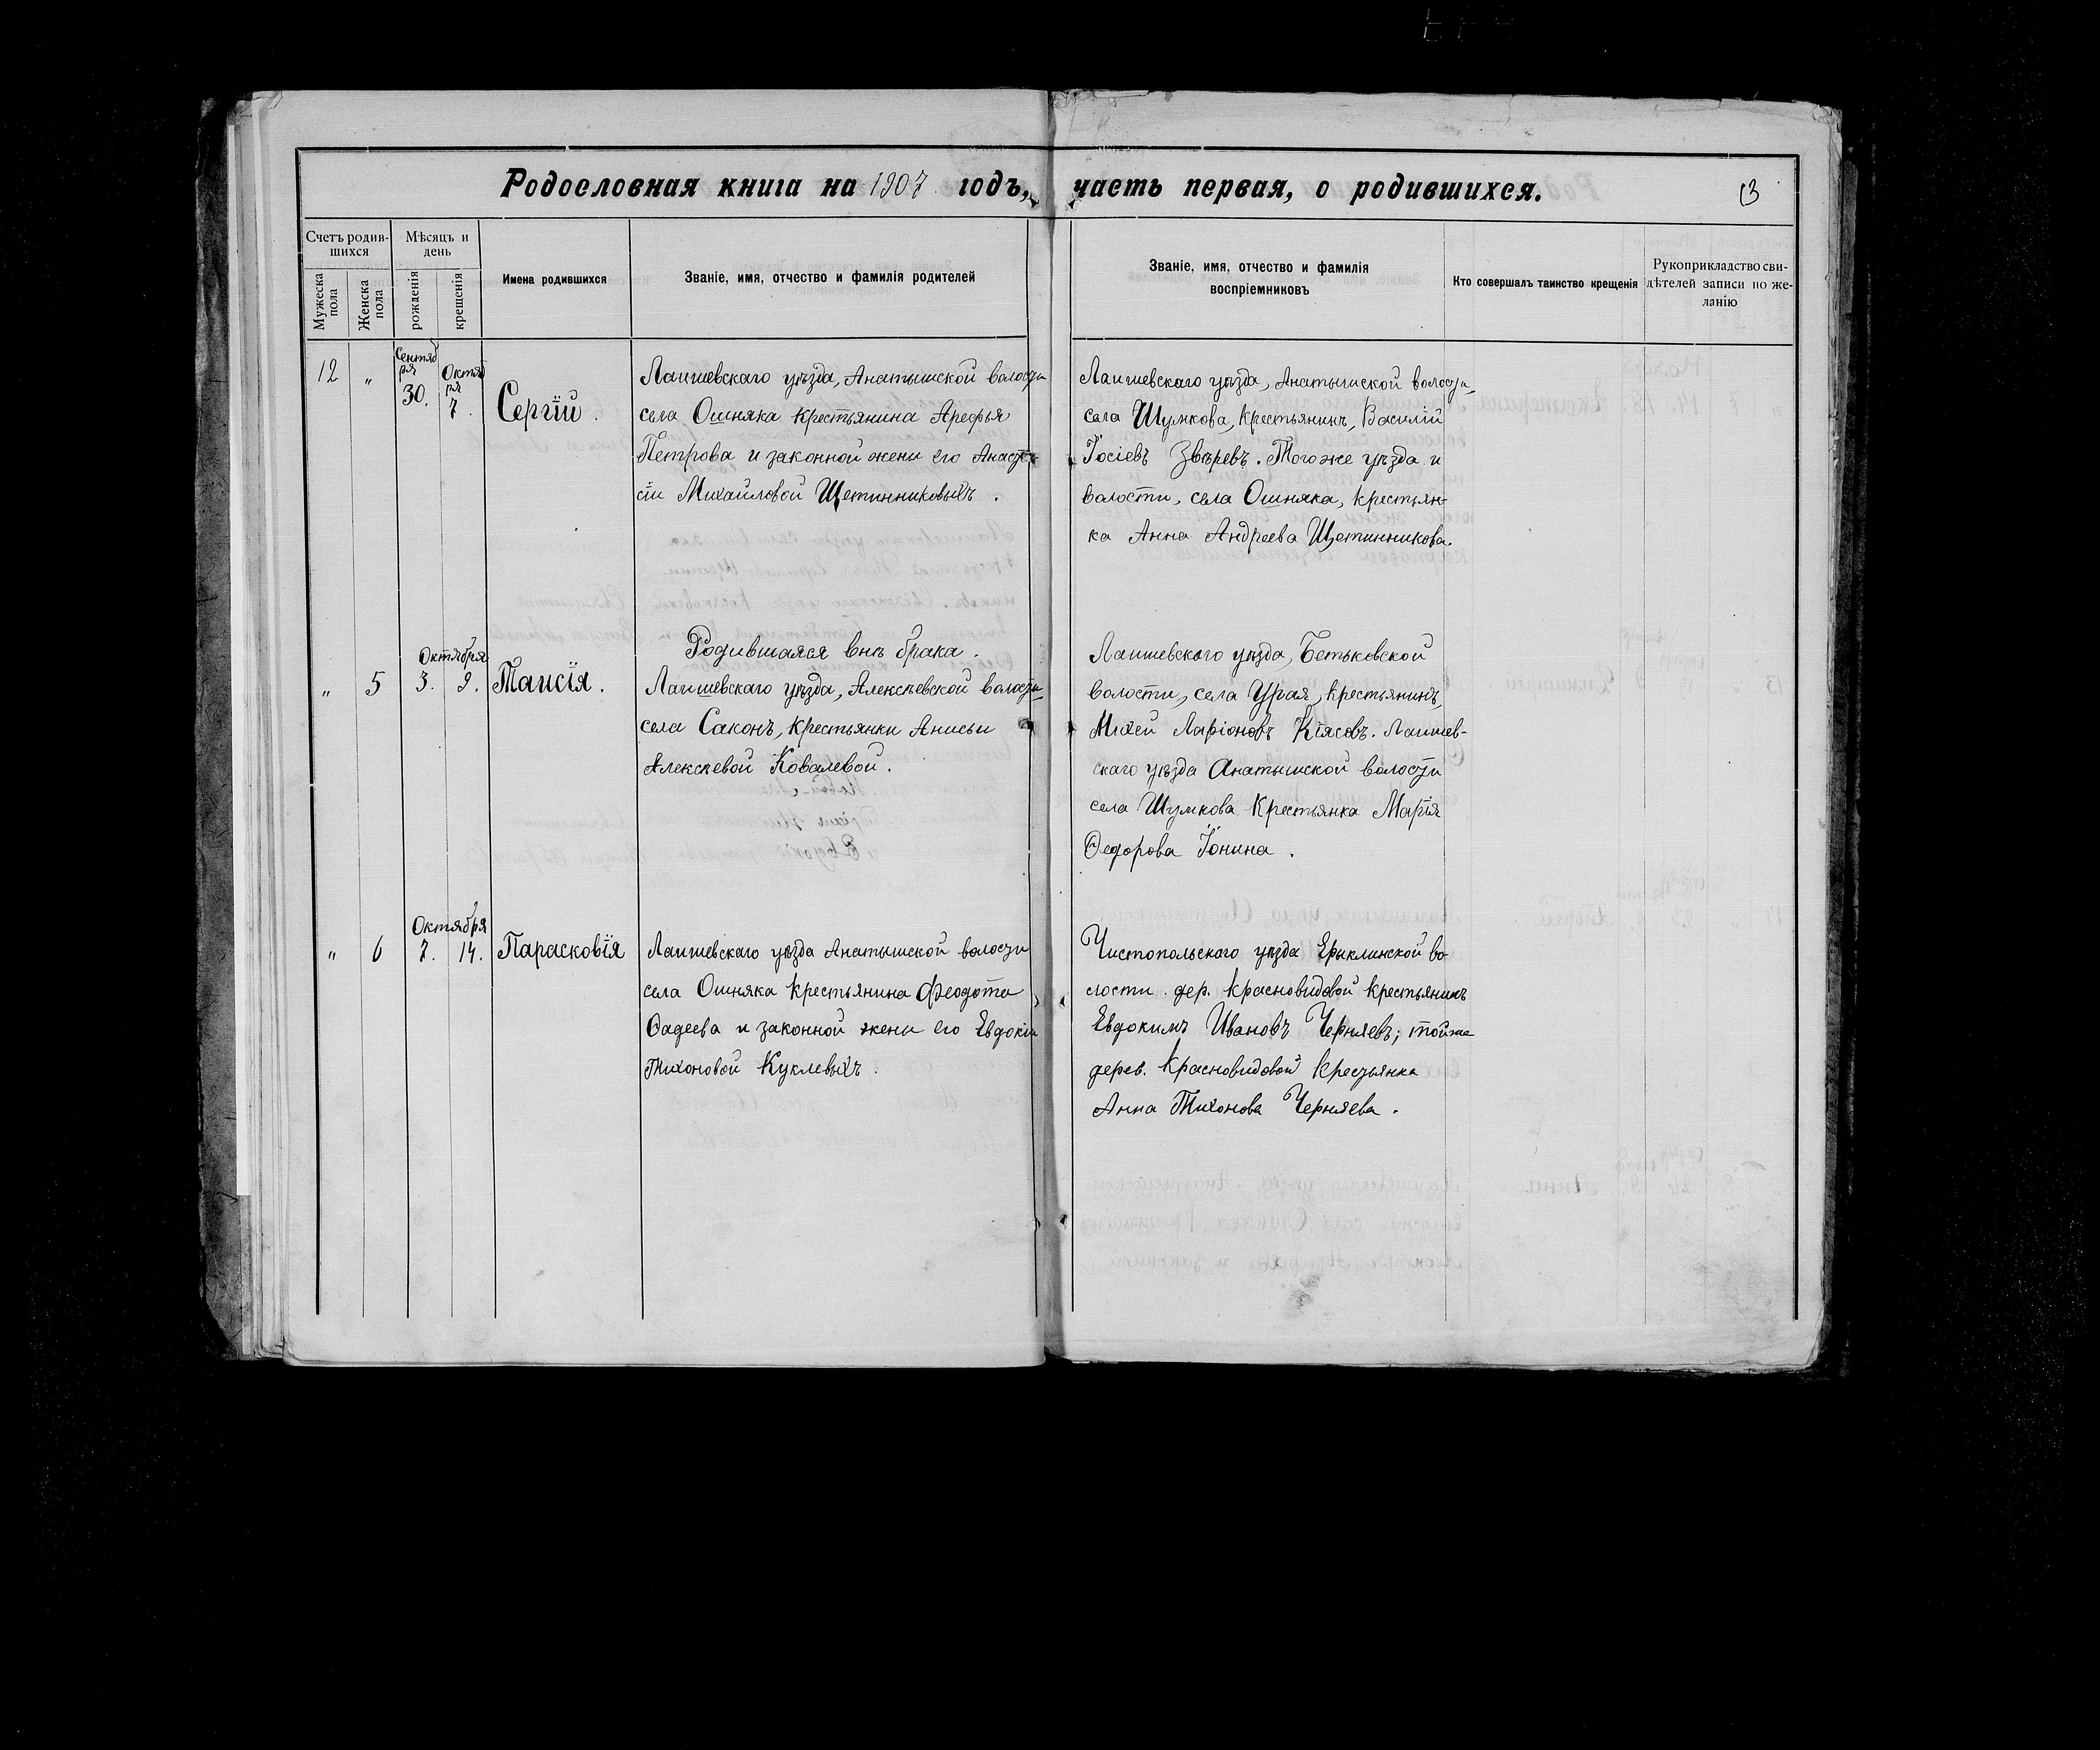 Родословная книга на 1907 годъ, часть первая, о родившихся.
13
Счетъ родив-
шихся
Мѣсяцъ и
день
Мужеска
пола
Женска
пола
рожденія
крещенія
Имена родившихся
Званіе, имя, отчество и фамилія родителей
Званіе, имя, отчество и фамилія
воспріемниковъ
Кто совершалъ таинство крещенія
Рукоприкладство сви-
дѣтелей записи по же-
ланію
12
"
Сентяб
ря
30.
Октяб
ря
7.
Сергій.
Лаишевскаго уѣзда, Анатышской волости
села Ошняка крестьянина Арефья
Петрова и законной жены его Анаста-
сіи Михайловой Щетинниковыхъ.
Лаишевскаго уѣзда, Анатышской волости
села Шумкова, крестьянинъ, Василій
Іосіевъ Звѣревъ. Того же уѣзда и
волости, села Ошняка, крестьян-
ка Анна Андреева Щетинникова.
"
5
Октября
3. 9.
Таисія.
Родившаяся внѣ брака.
Лаишевскаго уѣзда, Алексѣевской волости
села Саконъ, крестьянки Анисьи
Алексѣевой Ковалевой.
Лаишевскаго уѣзда, Бетьковской
волости, села Урая, крестьянинъ,
Михей Ларіоновъ Кіясовъ. Лаишев-
скаго уѣзда Анатышской волости
села Шумкова Крестьянка Марія
Ѳедорова Іонина.
"
6
Октября
7. 14.
Парасковія
Лаишевскаго уѣзда Анатышской волости
села Ошняка крестьянина Феодота
Ѳадеева и законной жены его Евдокіи
Тихоновой Куклевыхъ.
Чистопольскаго уѣзда Ерыклинской во-
лости. дер. Красновидовой крестьянинъ
Евдокимъ Ивановъ Черняевъ; той же
дерев. Красновидовой Крестьянка
Анна Тихонова Черняева.